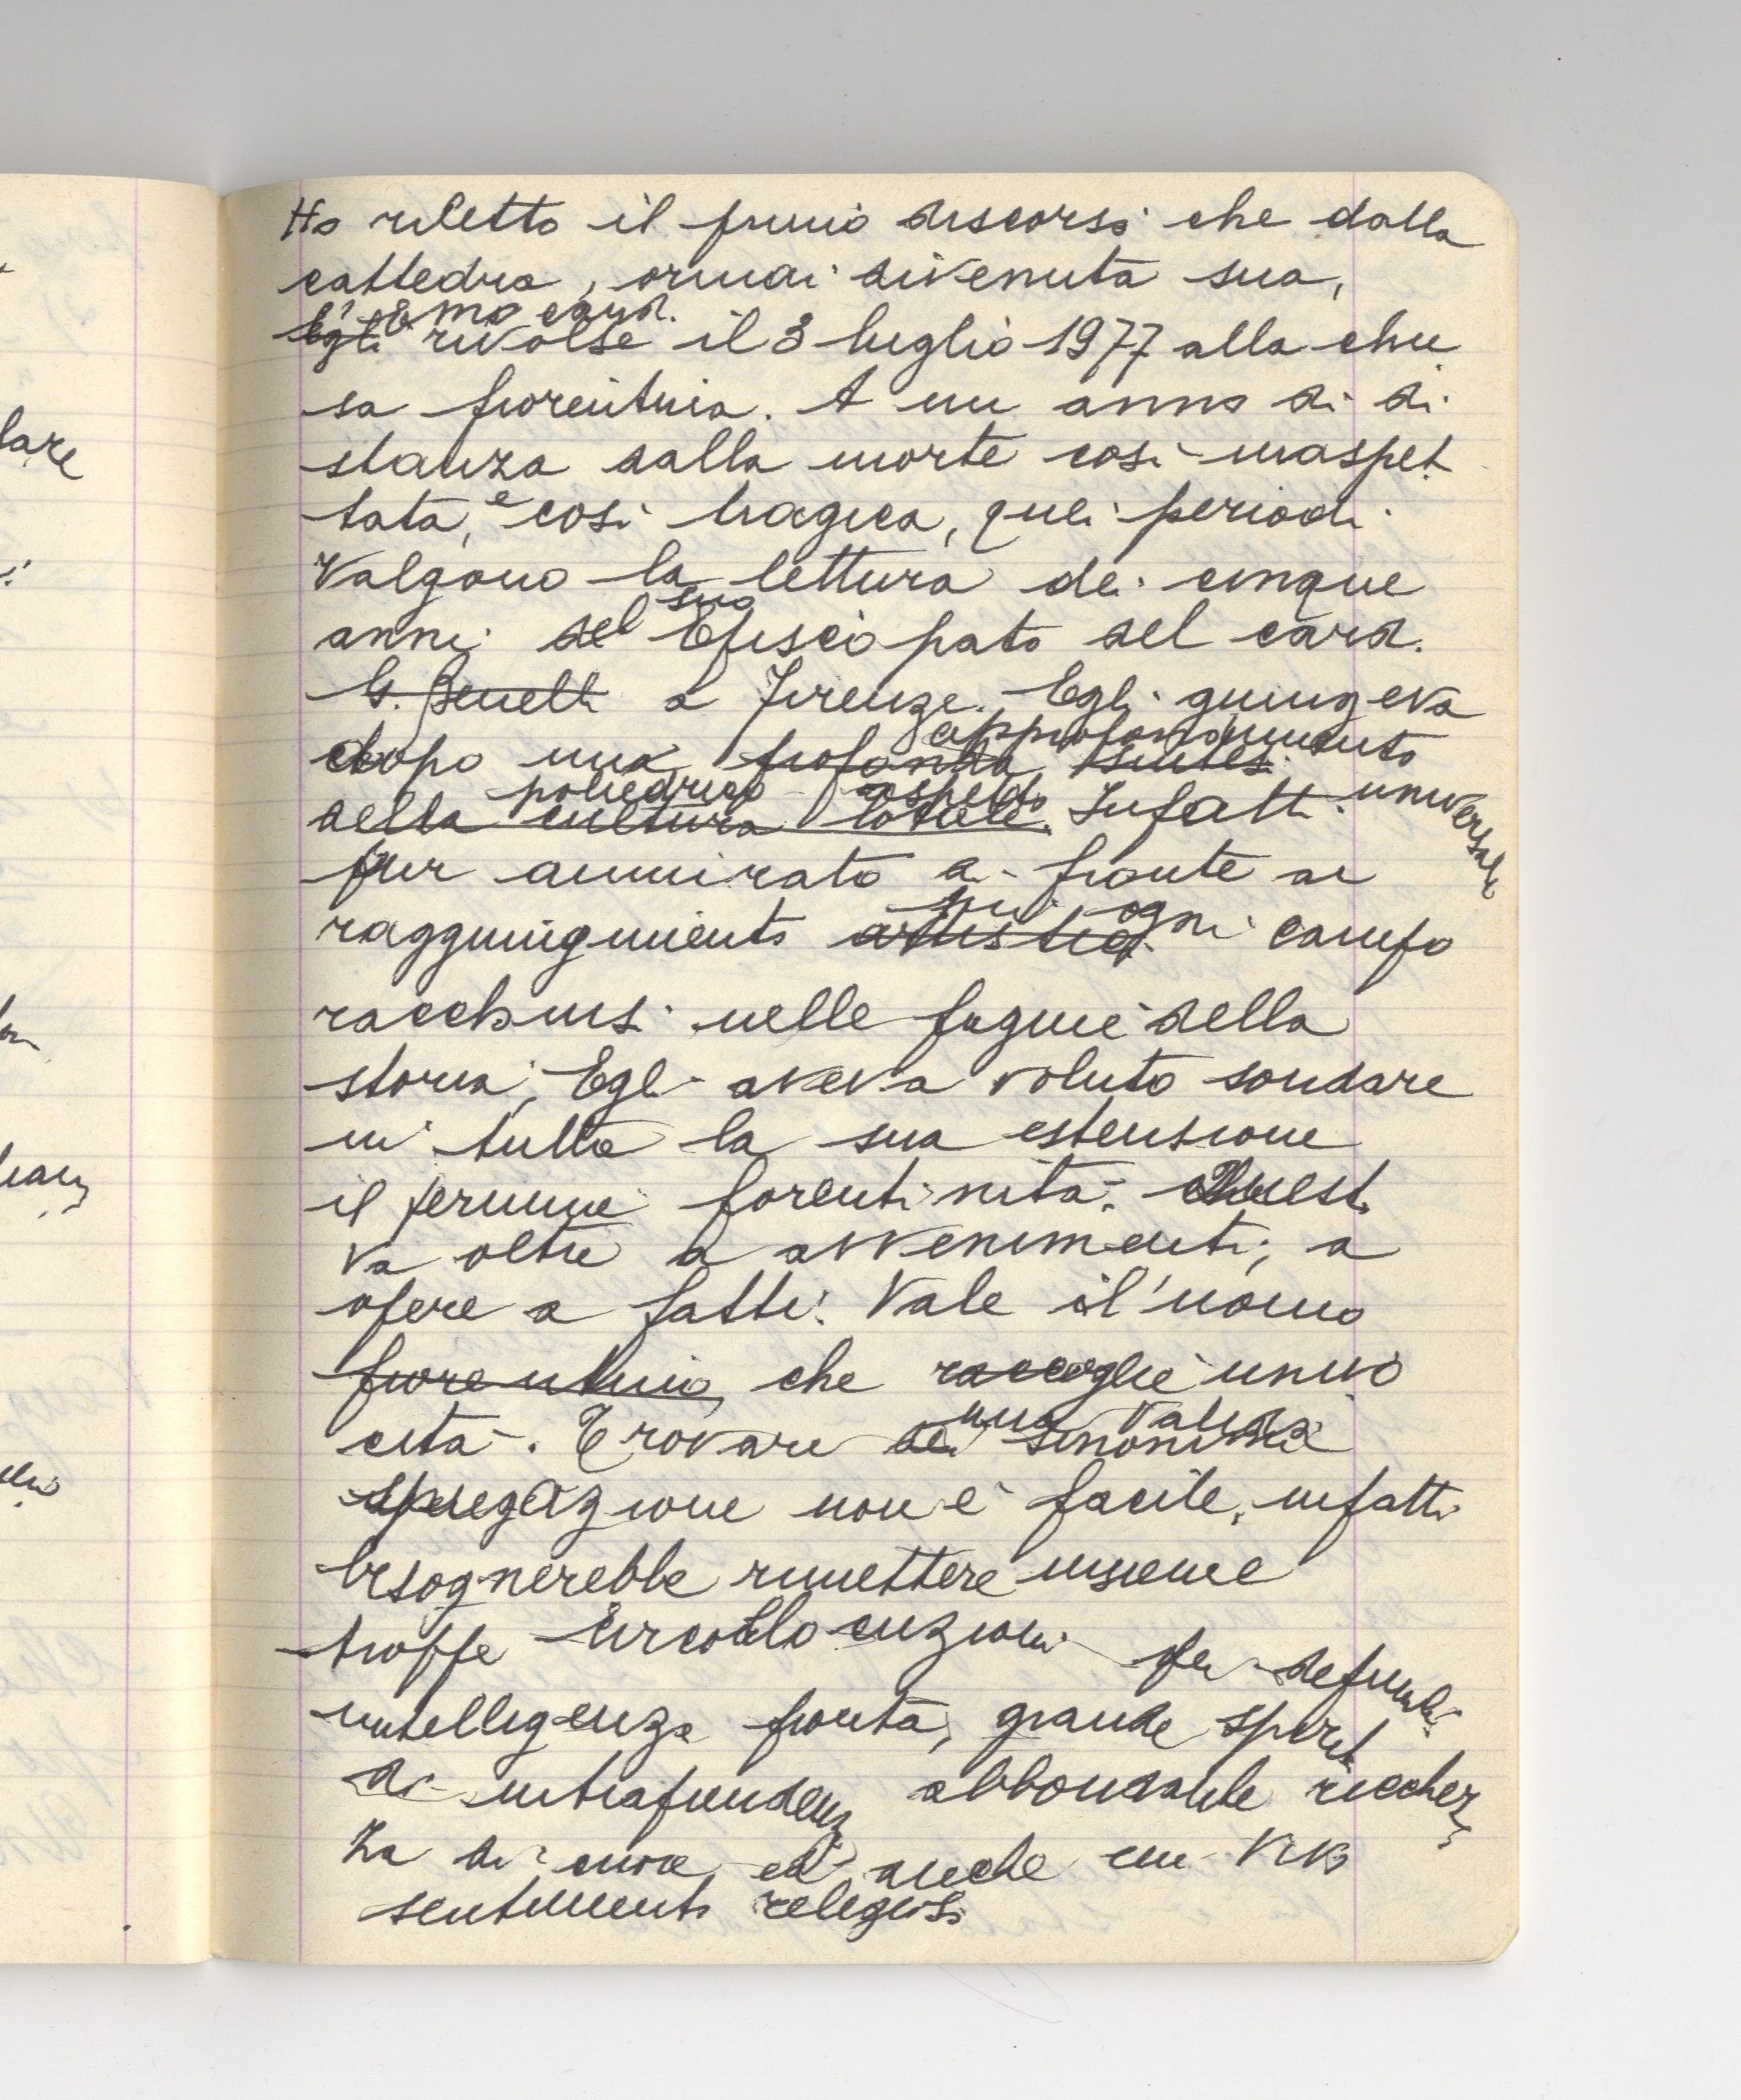 lare
Ho riletto il primo discorso che dalla
cattedra, ormai divenuta sua,
l'Em.mo card.
Egli rivolse il 3 luglio 1977 alla chie
sa fiorentina. A un anno di di
stanza dalla morte così inaspet
tata, e così tragica, quei periodi
valgono la lettura dei cinque
suo
anni del Episcopato del card.
G. Benelli a Firenze. Egli giungeva
approfondimento
dopo una profonda sintesi
poliedrico aspetto universale
della cultura totale. Infatti
pur ammirato di fronte ai
in ogni
raggiungimenti artistici campo
racchiusi nelle pagine della
storia, Egli aveva voluto sondare
in tutta la sua estensione
il termine fiorentinità. Questa
va oltre a avvenimenti, a
opere a fatti. Vale il l'uomo
fiorentino, che raccoglie univo
cità. Trovare una valida
dei sinonimi
spiegazione non è facile, infatti
bisognerebbe rimettere insieme
troppe circonlocuzioni per definirla:
intelligenza pronta, grande spirito
di intraprendenza abbondante ricchez
za di cuore ed anche un vivo
sentimento religioso